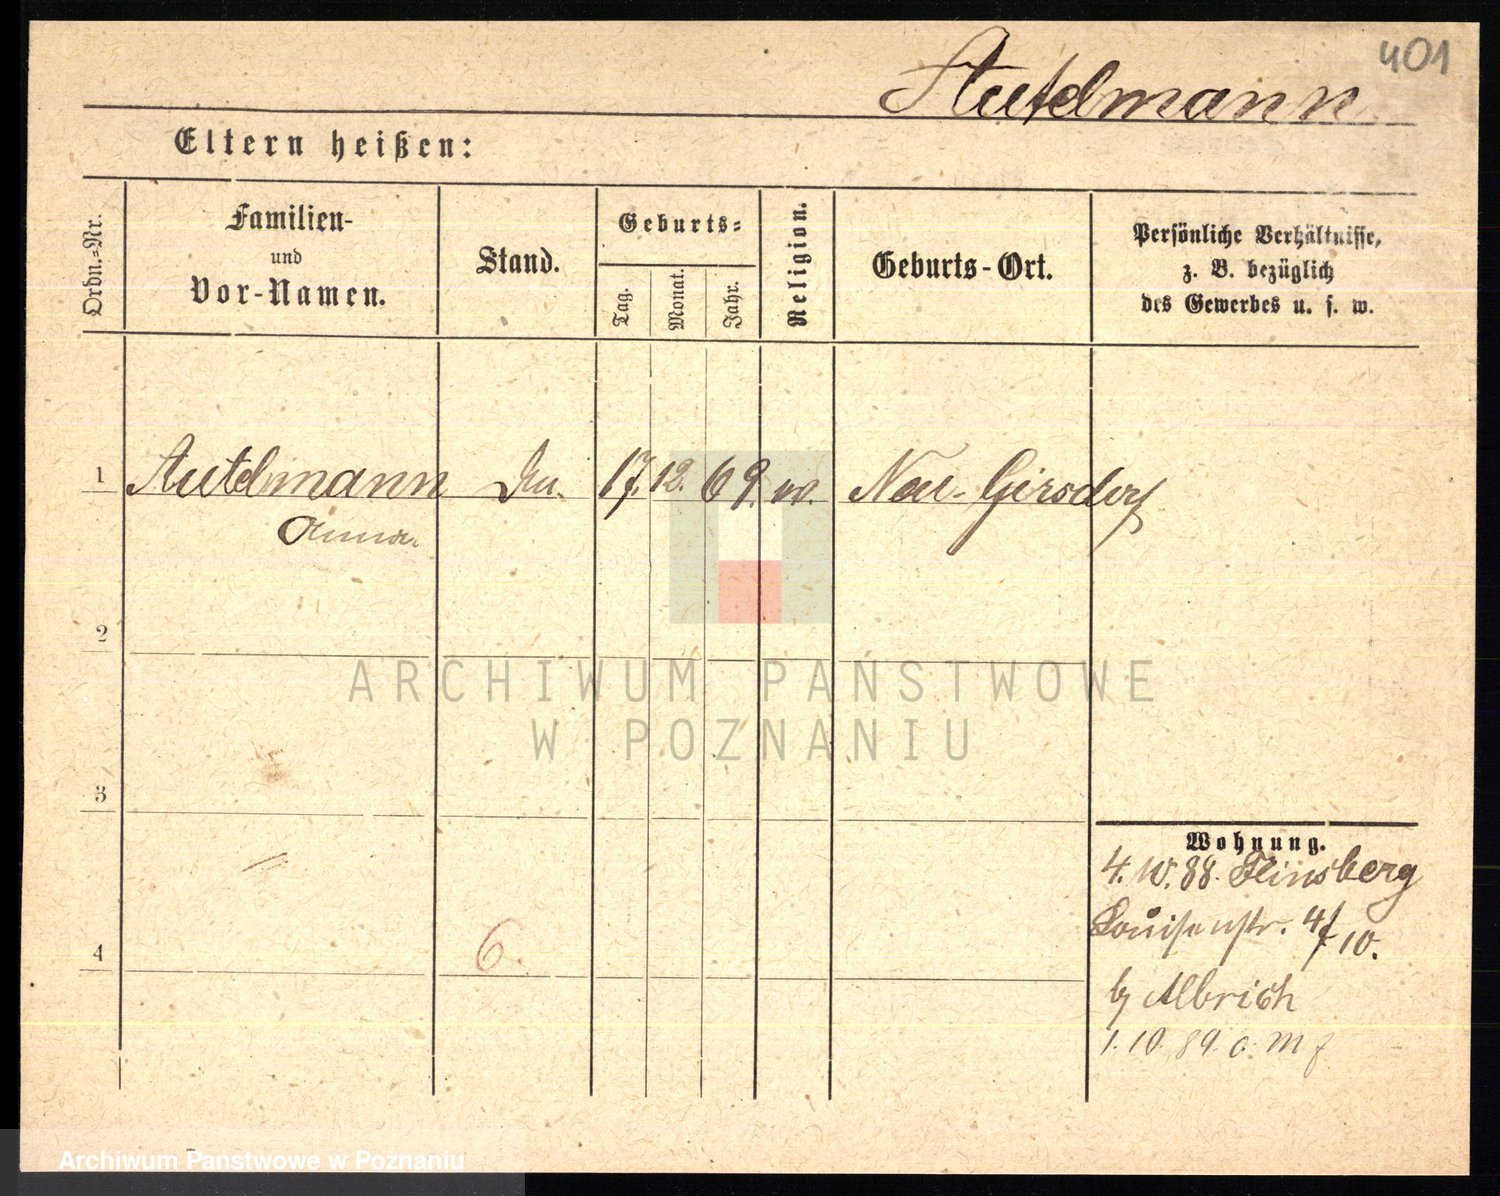 401
Autelmann
Eltern heißen:
Ordn.-Nr.
Familien-
und
Vor-Namen.
Stand.
Geburts-
Tag.
Monat.
Jahr.
Religion.
Geburts-Ort.
Persönliche Verhältnisse,
z. B. bezüglich
des Gewerbes u. s. w.
1 Autelmann 17. 12. 69. Neu-Girsdorf
Anna
2
ARCHIWUM PAŃSTWOWE
W POZNANIU
3
Wohnung.
4. 10. 88. Flinsberg
Louisenstr. 4/10.
6.
4
b/ Albrich
1. 10. 89.
Archiwum Państwowe w Poznaniu